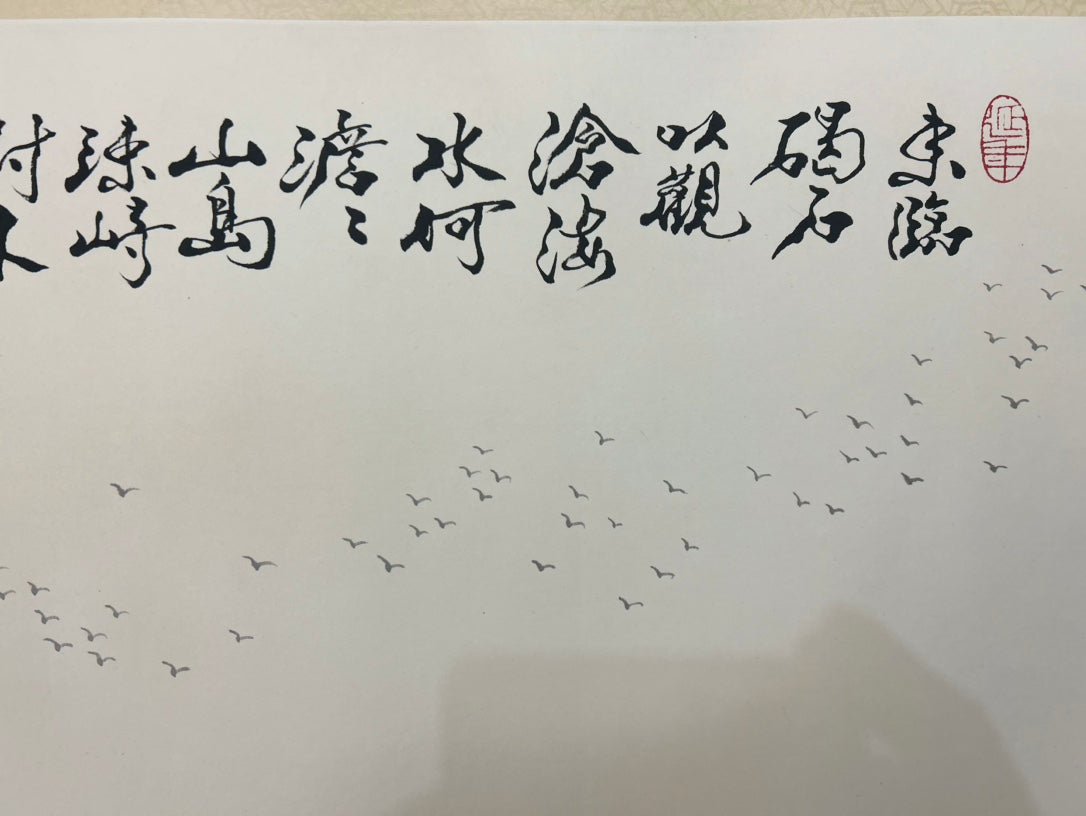 延年
東臨
碣石
以觀
滄海
水何
澹〻
山島
竦峙